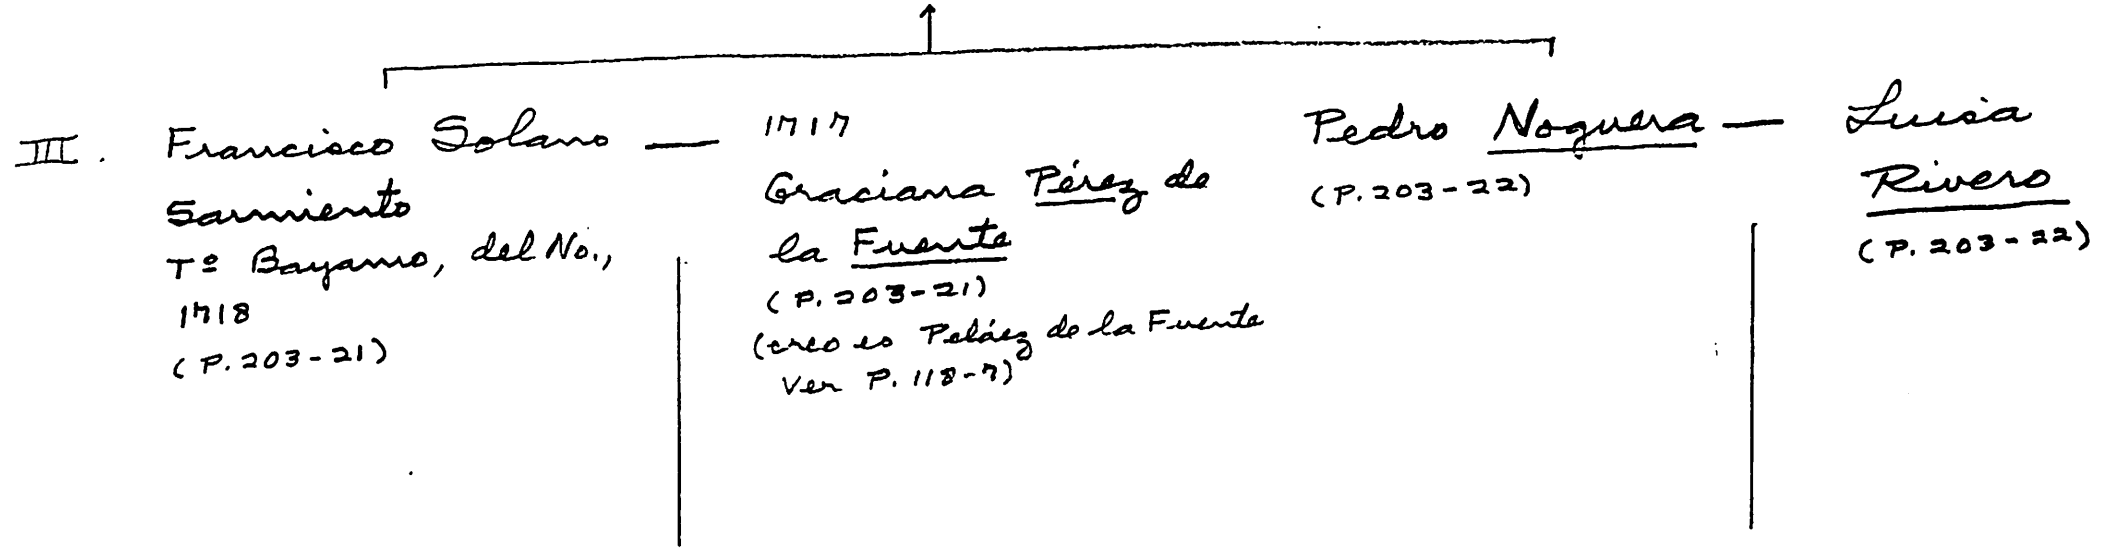 III. Francisco Solano —
Sarmiento
Tº Bayamo, del No.,
1718
(P. 203-21)
1717
Graciana Pérez de
la Fuente
(P. 203-21)
(creo es Peláez de la Fuente
Ver P. 118-7)
Pedro Noguera —
(P. 203-22)
Luisa
Rivero
(P. 203-22)